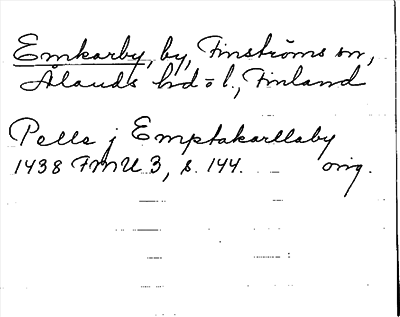 Emkarby, by, Finströms sn,
Ålands hd o l., Finland
Pelle j Emptakarllaby
1438 FMU 3, s. 144. orig.